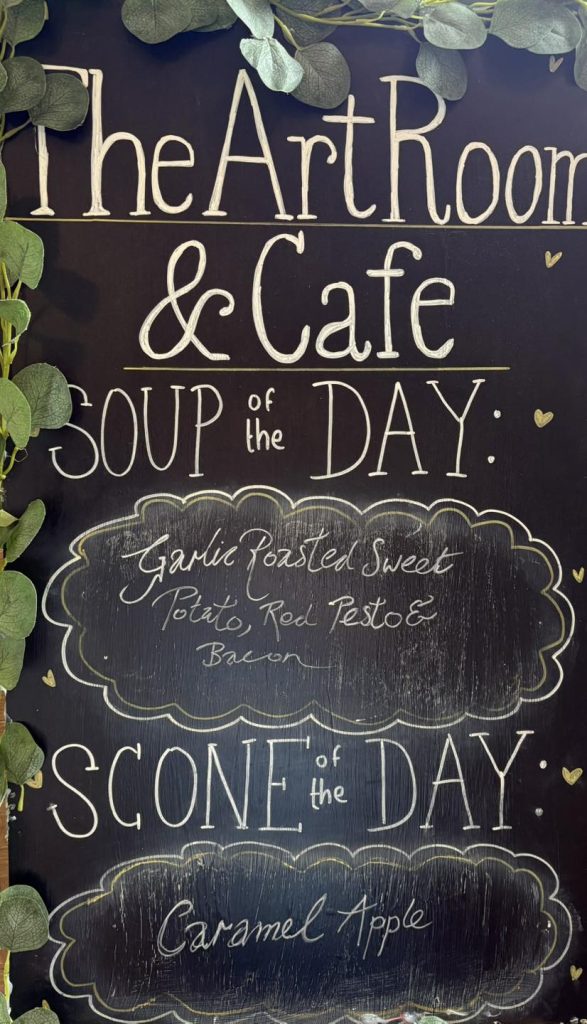 The Art Room
& Cafe
SOUP of the DAY:
Garlic Roasted Sweet
Potato, Red Pesto &
Bacon
SCONE of the DAY:
Caramel Apple